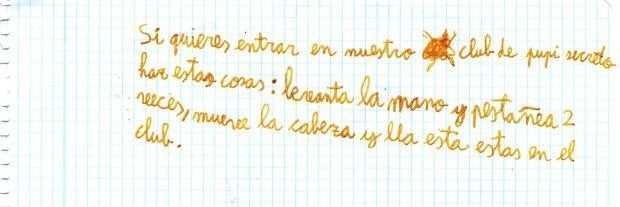 Si quieres entrar en nuestro club de pupi secreto
haz estas cosas: levanta la mano y pestañea 2
veces, mueve la cabeza y lla esta estas en el
club.